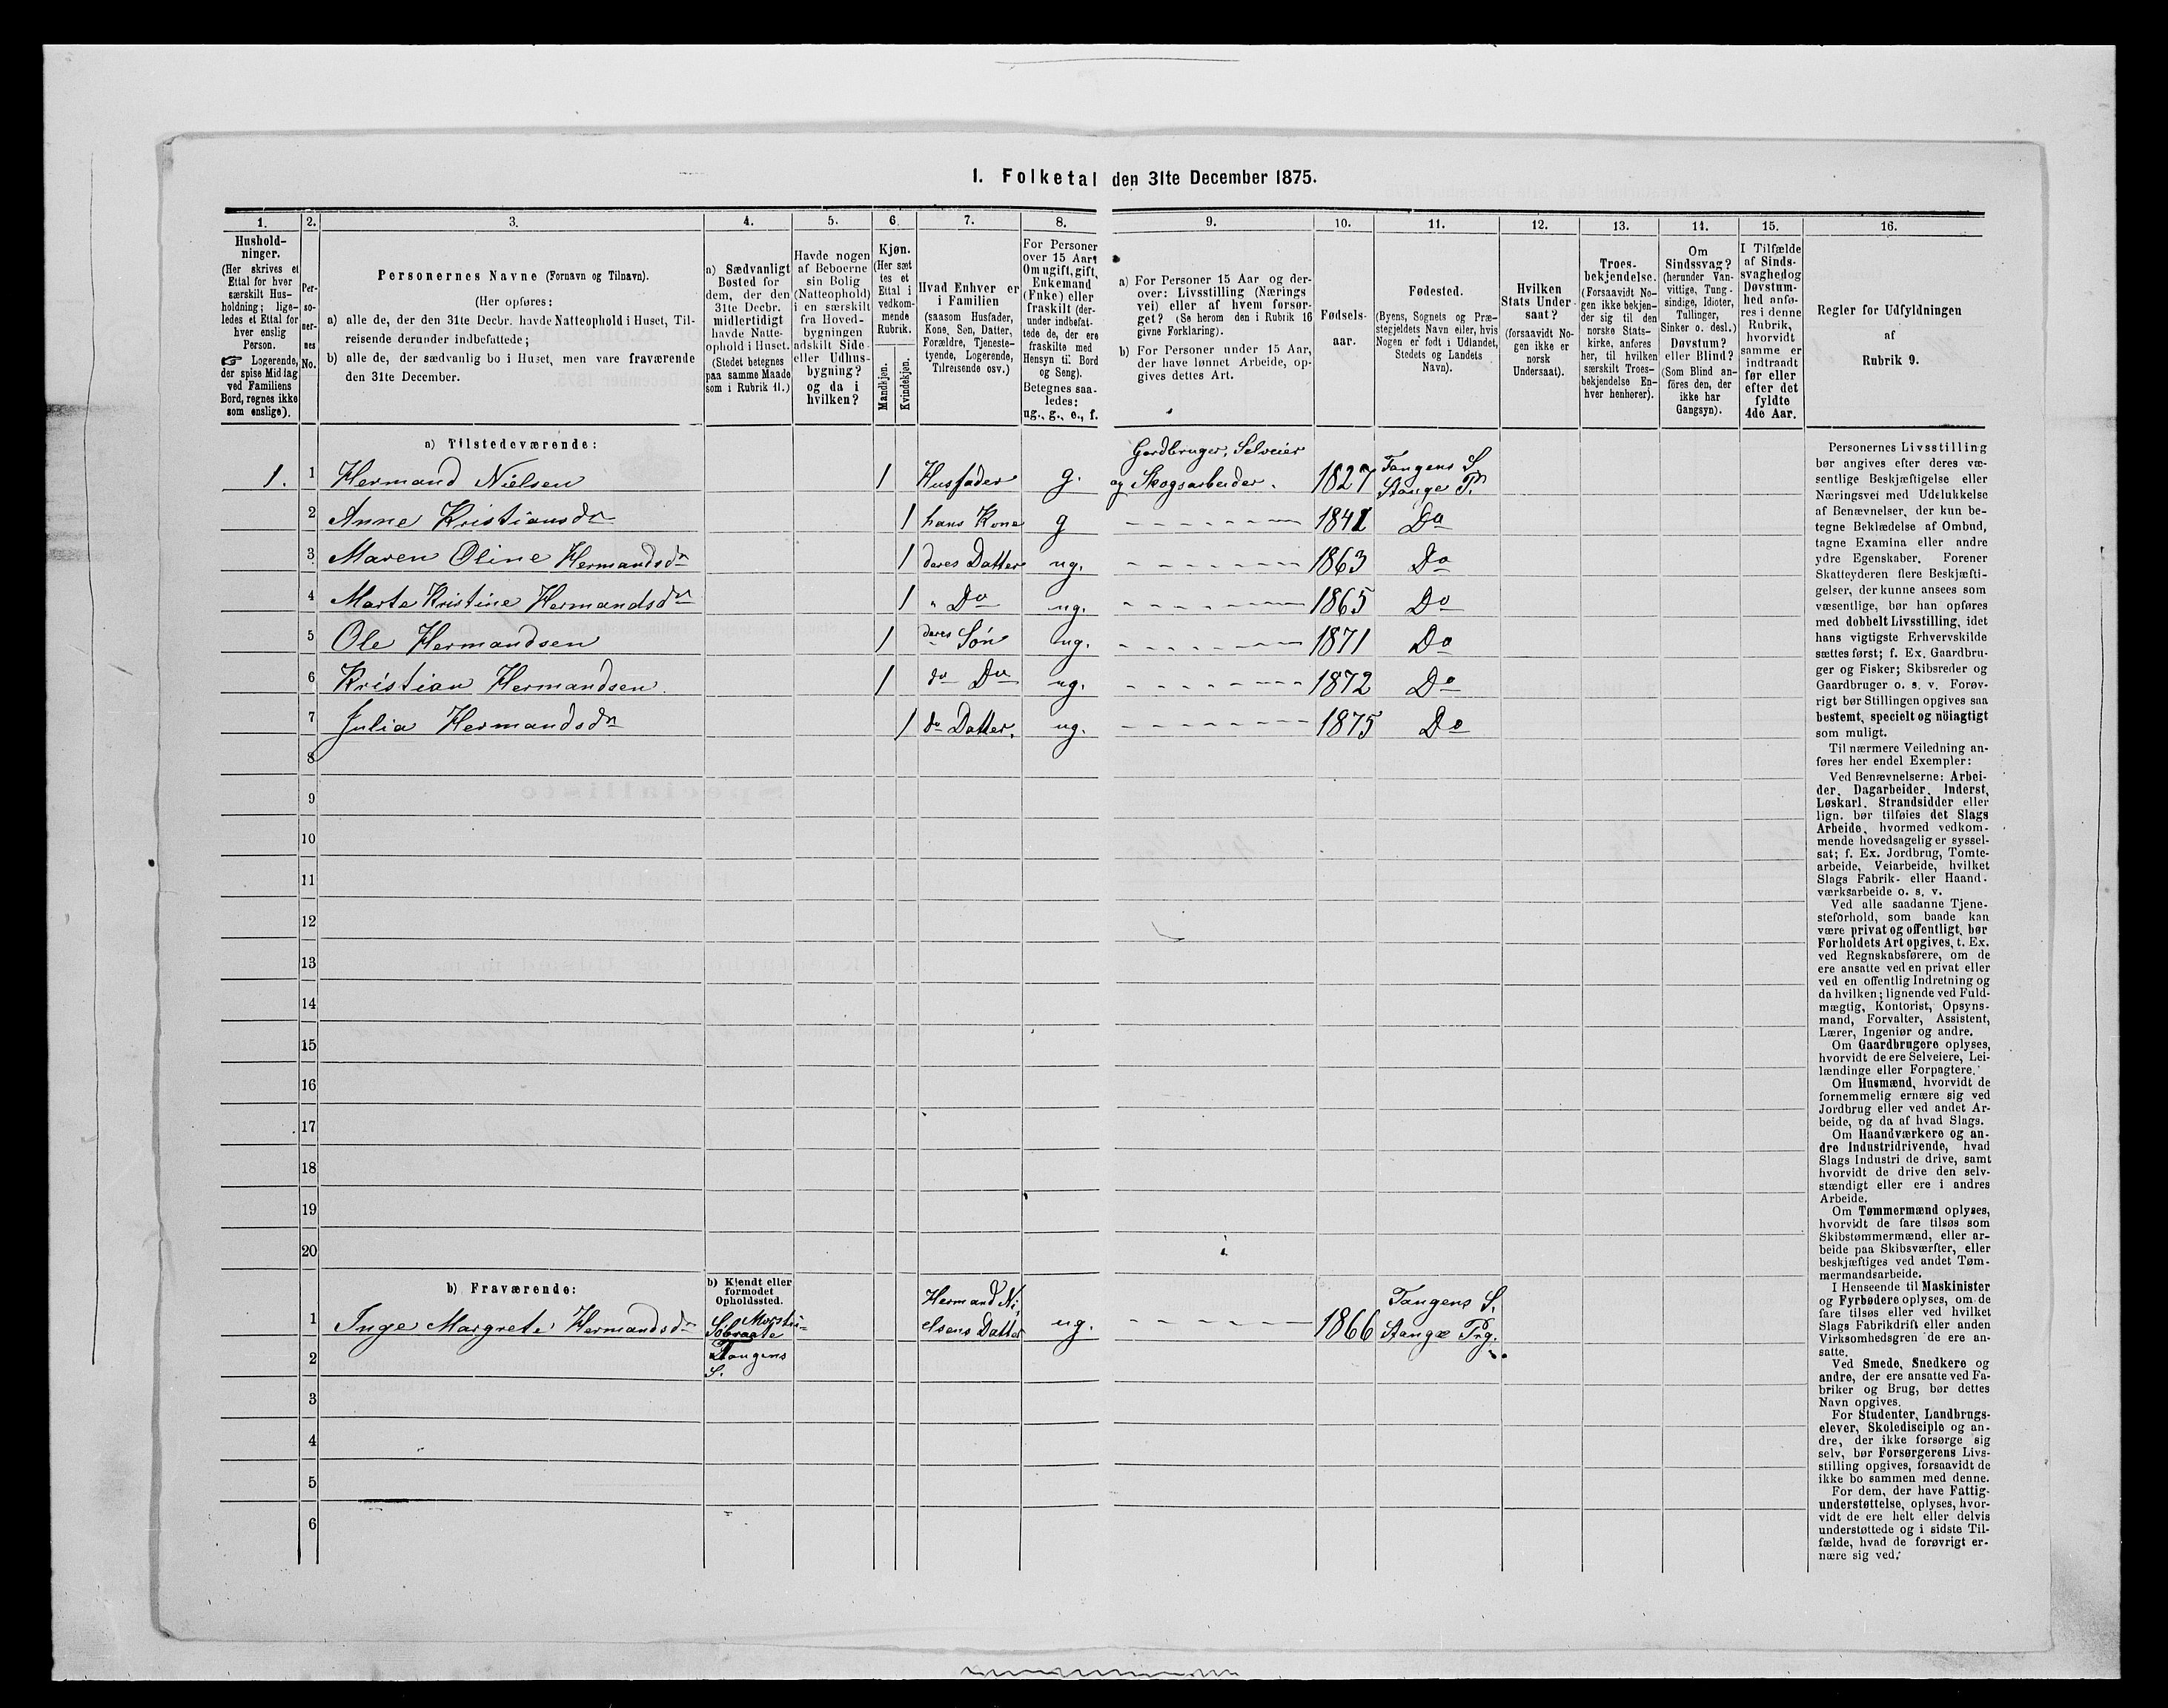 I. Folketal den 31te December 1875.
1.
Hushold-
ninger.
(Her skrives et
Ettal for hver
særskilt Hus-
holdning; lige-
ledes et Ettal for
hver enslig
Person.
☞ Logerende,
der spise Middag
ved Familiens
Bord, regnes ikke
som enslige).
2.
Per-
so-
ner-
nes
No.
3.
Personernes Navne (Fornavn og Tilnavn).
(Her opføres:
a) alle de, der den 31te Decbr. havde Natteophold i Huset, Til-
reisende derunder indbefattede;
b) alle de, der sædvanlig bo i Huset, men vare fraværende
den 31te December.
4.
a) Sædvanligt
Bosted for
dem, der den
31te Decbr.
midlertidigt
havde Natte-
ophold i Huset.
(Stedet betegnes
paa samme Maade
som i Rubrik 11.)
5.
Havde nogen
af Beboerne
sin Bolig
(Natteophold)
i en særskilt
fra Hoved-
bygningen
adskilt Side-
eller Udhus-
bygning?
og da i
hvilken?
6.
Kjøn.
(Her sæt
tes et
Ettal i
vedkom-
mende
Rubrik.
Mandkjøn.
Kvindekjøn.
7.
Hvad Enhver er
i Familien
(saasom Husfader,
Kone, Søn, Datter,
Forældre, Tjeneste-
tyende, Logerende,
Tilreisende osv.)
8.
For Personer
over 15 Aar:
Om ugift, gift,
Enkemand
(Enke) eller
fraskilt (der-
under indbefat-
tede de, der ere
fraskilte med
Hensyn til Bord
og Seng).
Betegnes saa-
ledes:
ug., g., e., f.
9.
a) For Personer 15 Aar og der-
over: Livsstilling (Nærings
vei) eller af hvem forsør-
get? (Se herom den i Rubrik 16
givne Forklaring).
b) For Personer under 15 Aar,
der have lønnet Arbeide, op-
gives dettes Art.
10.
Fødsels-
aar.
11.
Fødested.
(Byens, Sognets og Præ-
stegjeldets Navn eller, hvis
Nogen er født i Udlandet,
Stedets og Landets
Navn).
12.
Hvilken
Stats Under-
saat?
(forsaavidt No-
gen ikke er
norsk
Undersaat).
13.
Troes-
bekjendelse.
(Forsaavidt No-
gen ikke bekjen-
der sig til den
norske Stats-
kirke, anføres
her, til hvilken
særskilt Troes-
bekjendelse En-
hver henhører).
14.
Om
Sindssvag?
(herunder Van-
vittige, Tung-
sindige, Idioter,
Tullinger,
Sinker o. desl.)
Døvstum?
eller Blind?
(Som Blind an-
føres den, der
ikke har
Gangsyn).
15.
I Tilfælde
af Sinds-
svaghed og
Døvstum-
hed anfø-
res i denne
Rubrik,
hvorvidt
samme er
indtraadt
før eller
efter det
fyldte
4de Aar.
16.
Regler for Udfyldningen
af
Rubrik 9.
a) Tilstedeværende:
Gardbruger, Selveier
1. 1 Hermand Nielsen 1 Husfader g. og Skogsarbeider. 1827 Tangens S. Stange P.
2 Anne Kristiansdr 1 hans Kone g 1841 Do
3 Maren Oline Hermandsdr 1 deres Datter ug. 1863 Do
4 Marte Kristine Hermandsdr 1 " Do ug. 1865 Do
5 Ole Hermandsen 1 deres Søn ug. 1871 Do
6 Kristian Hermandsen. 1 do Do ug. 1872 Do
7 Julia Hermandsdr 1 do Datter. ug. 1875 Do
8
9
10
11
12
13
14
15
16
17
18
19
20
b) Fraværende:
b) Kjendt eller
formodet
Opholdssted.
1 Inge Margrete Hermandsdr Tangens S. Hermand Ni- elsens Datter ug. 1866 Tangens S. Stange Prg.
2
3
4
5
6
Personernes Livsstilling
bør angives efter deres væ-
sentlige Beskjæftigelse eller
Næringsvei med Udelukkelse
af Benævnelser, der kun be-
tegne Beklædelse af Ombud,
tagne Examina eller andre
ydre Egenskaber. Forener
Skatteyderen flere Beskjæfti-
gelser, der kunne ansees som
væsentlige, bør han opføres
med dobbelt Livsstilling, idet
hans vigtigste Erhvervskilde
sættes først; f. Ex. Gaardbru-
ger og Fisker; Skibsreder og
Gaardbruger o. s. v. Forøv-
rigt bør Stillingen opgives saa
bestemt, specielt og nöiagtigt
som muligt.
Til nærmere Veiledning an-
føres her endel Exempler:
Ved Benævnelserne: Arbei-
der, Dagarbeider, Inderst,
Løskarl, Strandsidder eller
lign. bør tilføies det Slags
Arbeide, hvormed vedkom-
mende hovedsagelig er syssel-
sat; f. Ex. Jordbrug, Tomte-
arbeide, Veiarbeide, hvilket
Slags Fabrik- eller Haand-
værksarbeide o. s. v.
Ved alle saadanne Tjene-
steforhold, som baade kan
være privat og offentligt, bør
Forholdets Art opgives, t. Ex.
ved Regnskabsførere, om de
ere ansatte ved en privat eller
ved en offentlig Indretning og
da hvilken; lignende ved Fuld-
mægtig, Kontorist, Opsyns-
mand, Forvalter, Assistent,
Lærer, Ingeniør og andre.
Om Gaardbrugere oplyses,
hvorvidt de ere Selveiere, Lei-
lændinge eller Forpagtere.
Om Husmænd, hvorvidt de
fornemmelig ernære sig ved
Jordbrug eller ved andet Ar-
beide, og da af hvad Slags.
Om Haandværkere og an-
dre Industridrivende, hvad
Slags Industri de drive, samt
hvorvidt de drive den selv-
stændigt eller ere i andres
Arbeide.
Om Tømmermænd oplyses,
hvorvidt de fare tilsøs som
Skibstømmermænd, eller ar-
beide paa Skibsværfter, eller
beskjæftiges ved andet Tøm-
mermandsarbeide.
I Henseende til Maskinister
og Fyrbødere oplyses, om de
fare tilsøs eller ved hvilket
Slags Fabrikdrift eller anden
Virksomhedsgren de ere an-
satte.
Ved Smede, Snedkere og
andre, der ere ansatte ved Fa-
briker og Brug, bør dettes
Navn opgives.
For Studenter, Landbrugs-
elever, Skoledisciple og an-
dre, der ikke forsørge sig
selv, bør Forsørgerens Livs-
stilling opgives, forsaavidt de
ikke bo sammen med denne.
For dem, der have Fattig-
understøttelse, oplyses, hvor-
vidt de ere helt eller delvis
understøttede og i sidste Til-
fælde, hvad de forøvrigt er-
nære sig ved.